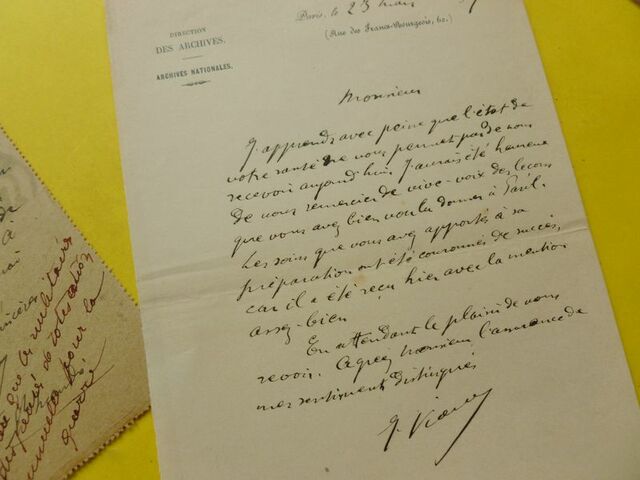 DIRECTION
DES ARCHIVES.
ARCHIVES NATIONALES.
Paris, le 23 mars
(Rue des Francs-Bourgeois, 60)
Monsieur
J'apprends avec peine que l'état de
votre santé ne vous permet pas de nous
recevoir aujourd'hui. J'aurais été heureux
de vous remercier de vive-voix des leçons
que vous avez bien voulu donner à
Les soins que vous avez apportés à sa
préparation ont été couronnés de succès,
car il a été reçu hier avec la mention
assez-bien
En attendant le plaisir de vous
revoir. Agréez monsieur l'assurance de
mes sentiments distingués
que les militaires
pour la
guerre